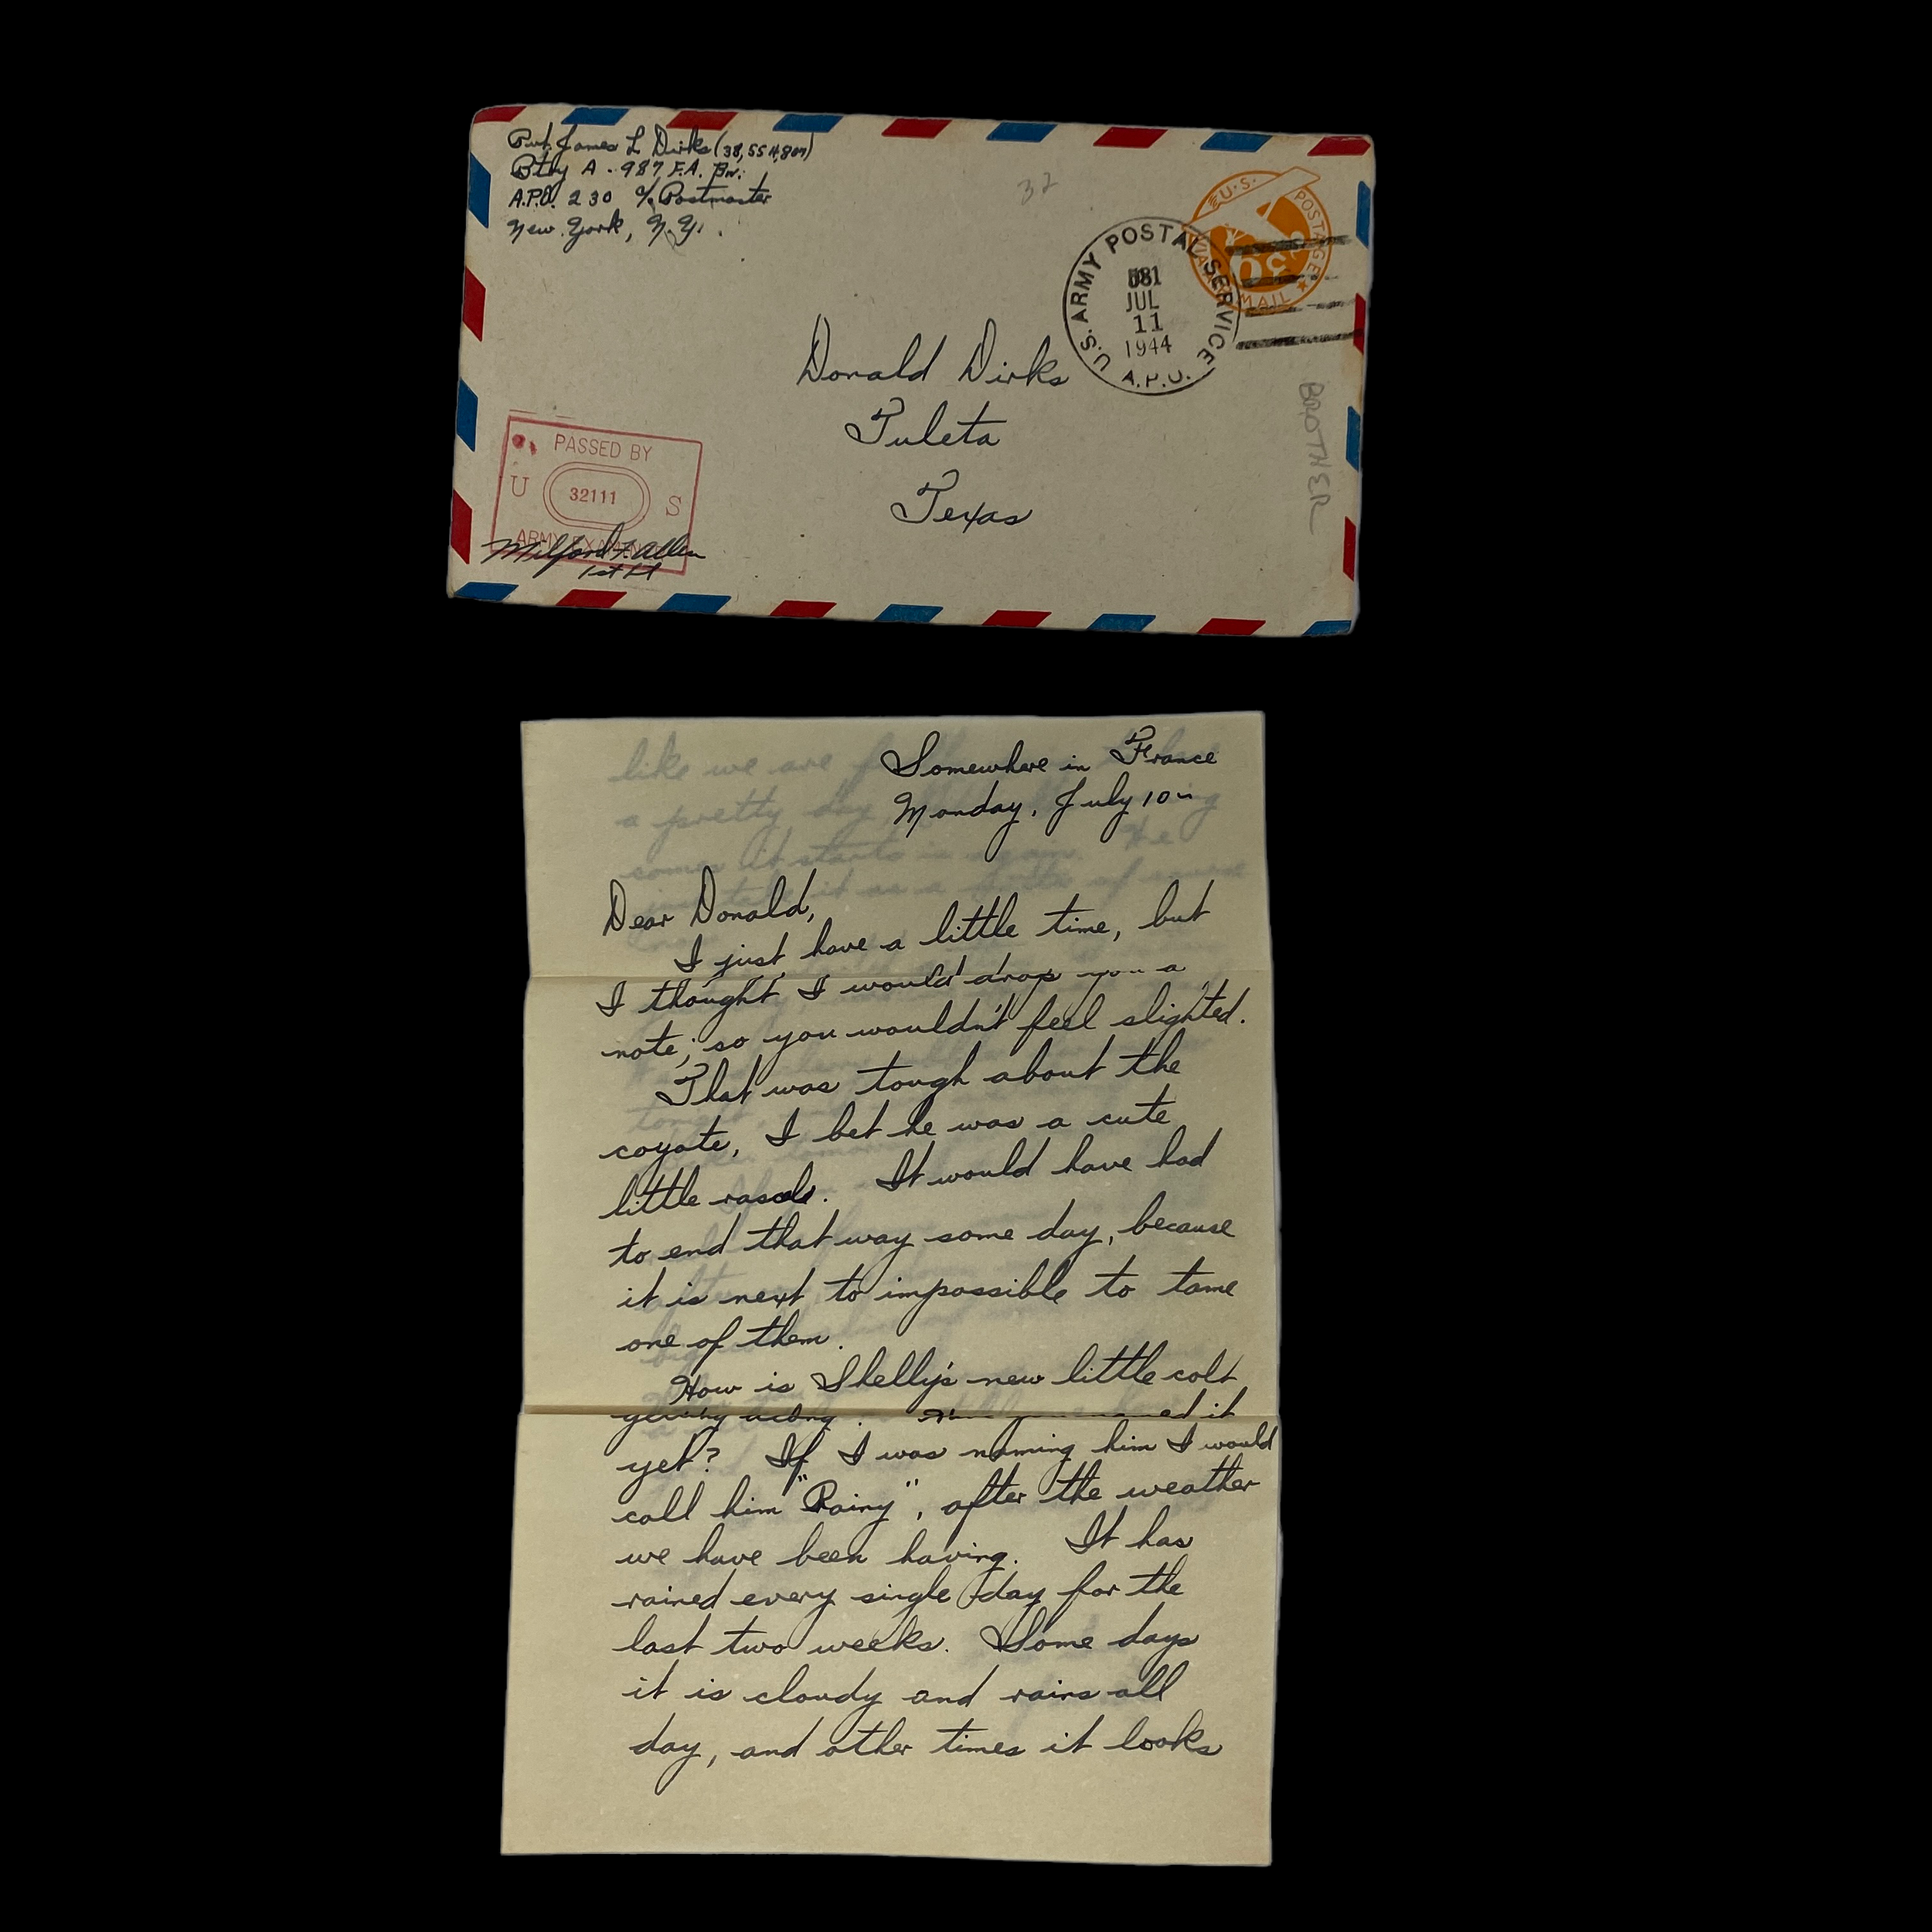 Pvt. James L Dirks (38,554,807)
Btry A - 987 F.A. Bn.
A.P.O. 230 c/o Postmaster
New York, N.Y.
32
U.S. POSTAGE
VIA AIR MAIL
6¢
U.S. ARMY POSTAL SERVICE
JUL
11
1944
A.P.O.
Donald Dirks
Tuleta
Texas
BROTHER
PASSED BY
U 32111 S
ARMY EXAMINER
Milford F. Allen
1st Lt
Somewhere in France
Monday, July 10
Dear Donald,
I just have a little time, but
I thought I would drop you a
note; so you wouldn't feel slighted.
That was tough about the
coyote, I bet he was a cute
little rascal. It would have had
to end that way some day, because
it is next to impossible to tame
one of them.
How is Shelly's new little colt
getting along. Have you named it
yet? If I was naming him I would
call him "Rainy", after the weather
we have been having. It has
rained every single day for the
last two weeks. Some days
it is cloudy and rains all
day, and other times it looks